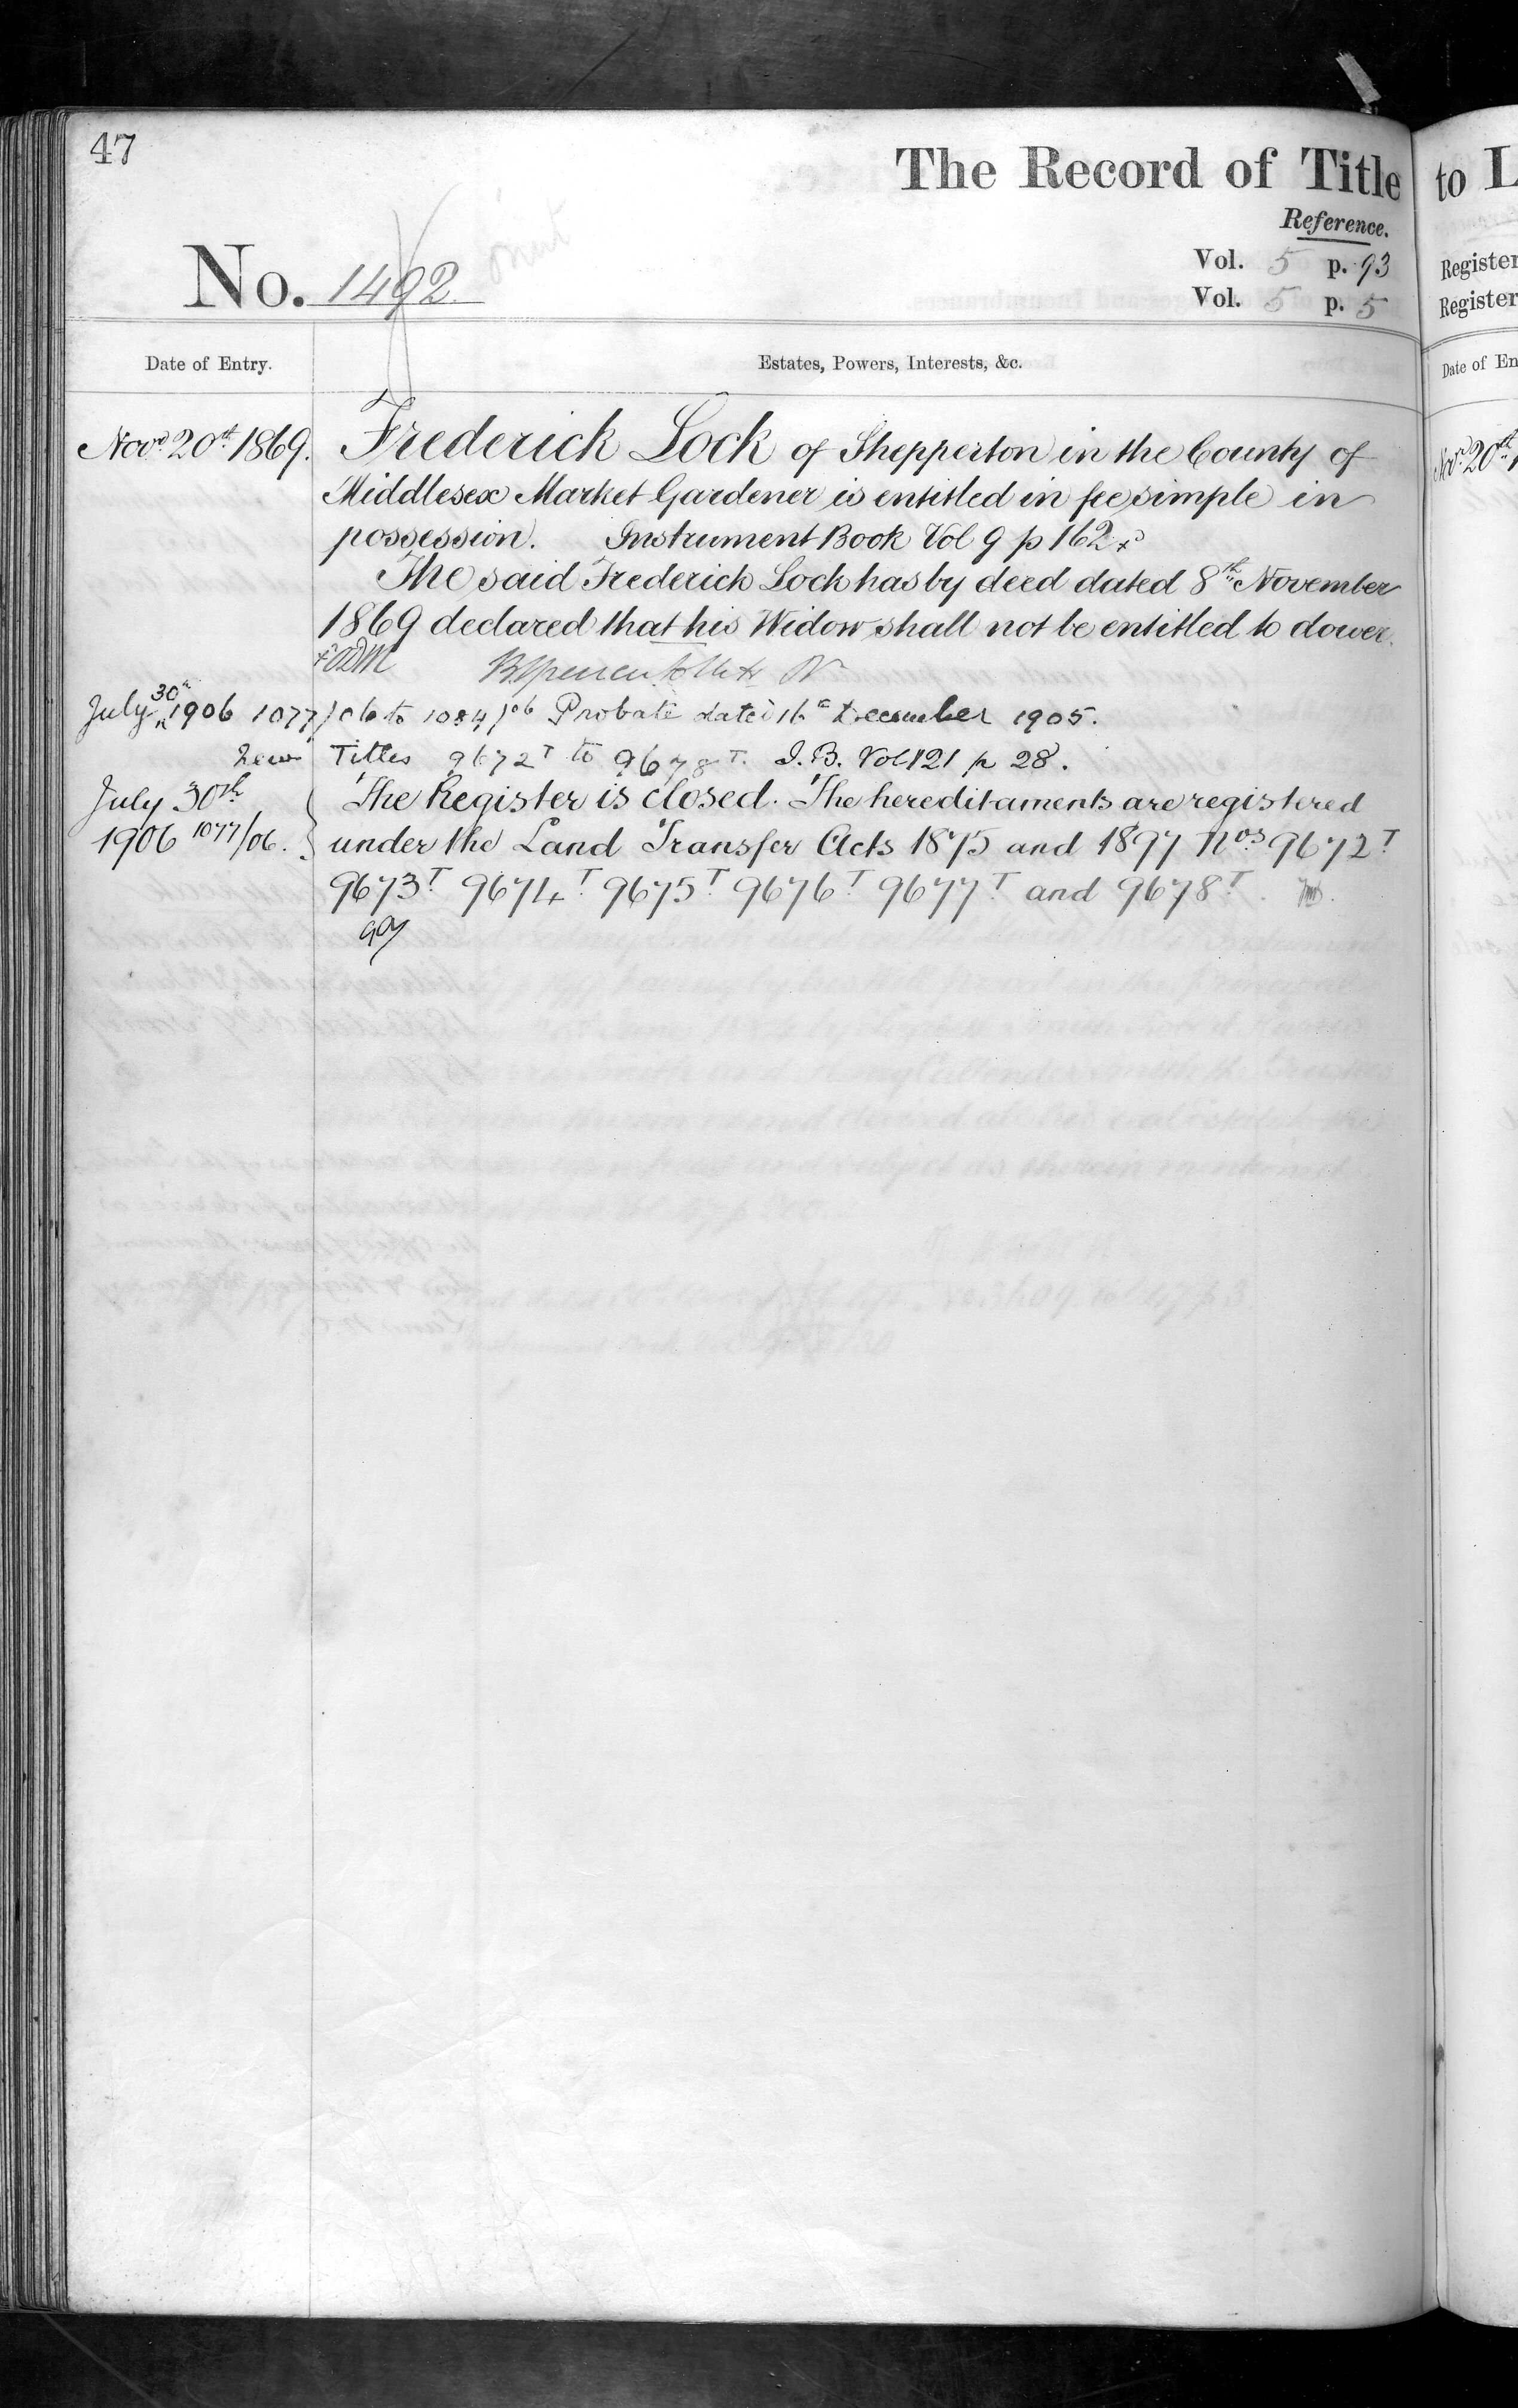 47
The Record of Title to L
Reference.
No. 1492
Vol. 5 p. 93 Register
Vol. 5 p. 5 Register
Date of Entry. Estates, Powers, Interests, &c. Date of En
Novr 20th 1869. Frederick Lock of Shepperton in the County of
Middlesex Market Gardener is entitled in fee simple in
possession. Instrument Book Vol 9 p 162
The said Frederick Lock has by deed dated 8th November
1869 declared that his Widow shall not be entitled to dower.
July 30th 1906 1077/06 to 1084/06 Probate dated 16th December 1905.
New Titles 9672T to 9678T. I.B. Vol 121 p 28.
July 30th The Register is closed. The hereditaments are registered
1906 1077/06. under the Land Transfer Acts 1875 and 1897 Nos 9672T
9673T 9674T 9675T 9676T 9677T and 9678T.
Novr 20th